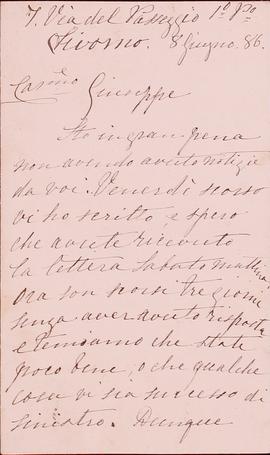 7. Via del Passeggio 1º Pº
Livorno. 8 Giugno. 86.
Carmo Giuseppe
Sto in gran pena
non avendo avuto notizie
da voi. Venerdì scorso
vi ho scritto, e spero
che avrete ricevuto
la lettera Sabato mattina,
ora son scorsi tre giorni
senza aver avuto risposta
e temiamo che state
poco bene, o che qualche
cosa vi sia successo di
sinistro. Dunque